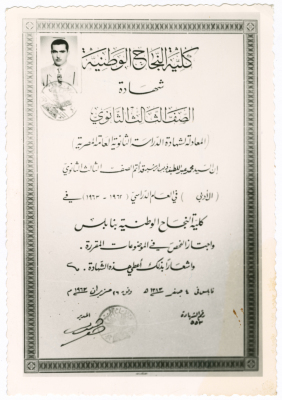 كلية النجاح الوطنية
شهادة
الصف الثالث الثانوي
المعادلة لشهادة الدراسة الثانوية العامة المصرية
إن السيد محمد عبد اللطيف قد أتم الصف الثالث الثانوي
(الأدبي) في العام الدراسي (١٩٦٢ - ١٩٦٣) في
كلية النجاح الوطنية بنابلس
واجتاز الفحص في الموضوعات المقررة .
واشعارًا بذلك أعطي هذه الشهادة .
نابلس في ٤ صفر ١٣٨٣ هـ وفق ٢٠ حزيران ١٩٦٣ م
رقم الشهادة
المدير